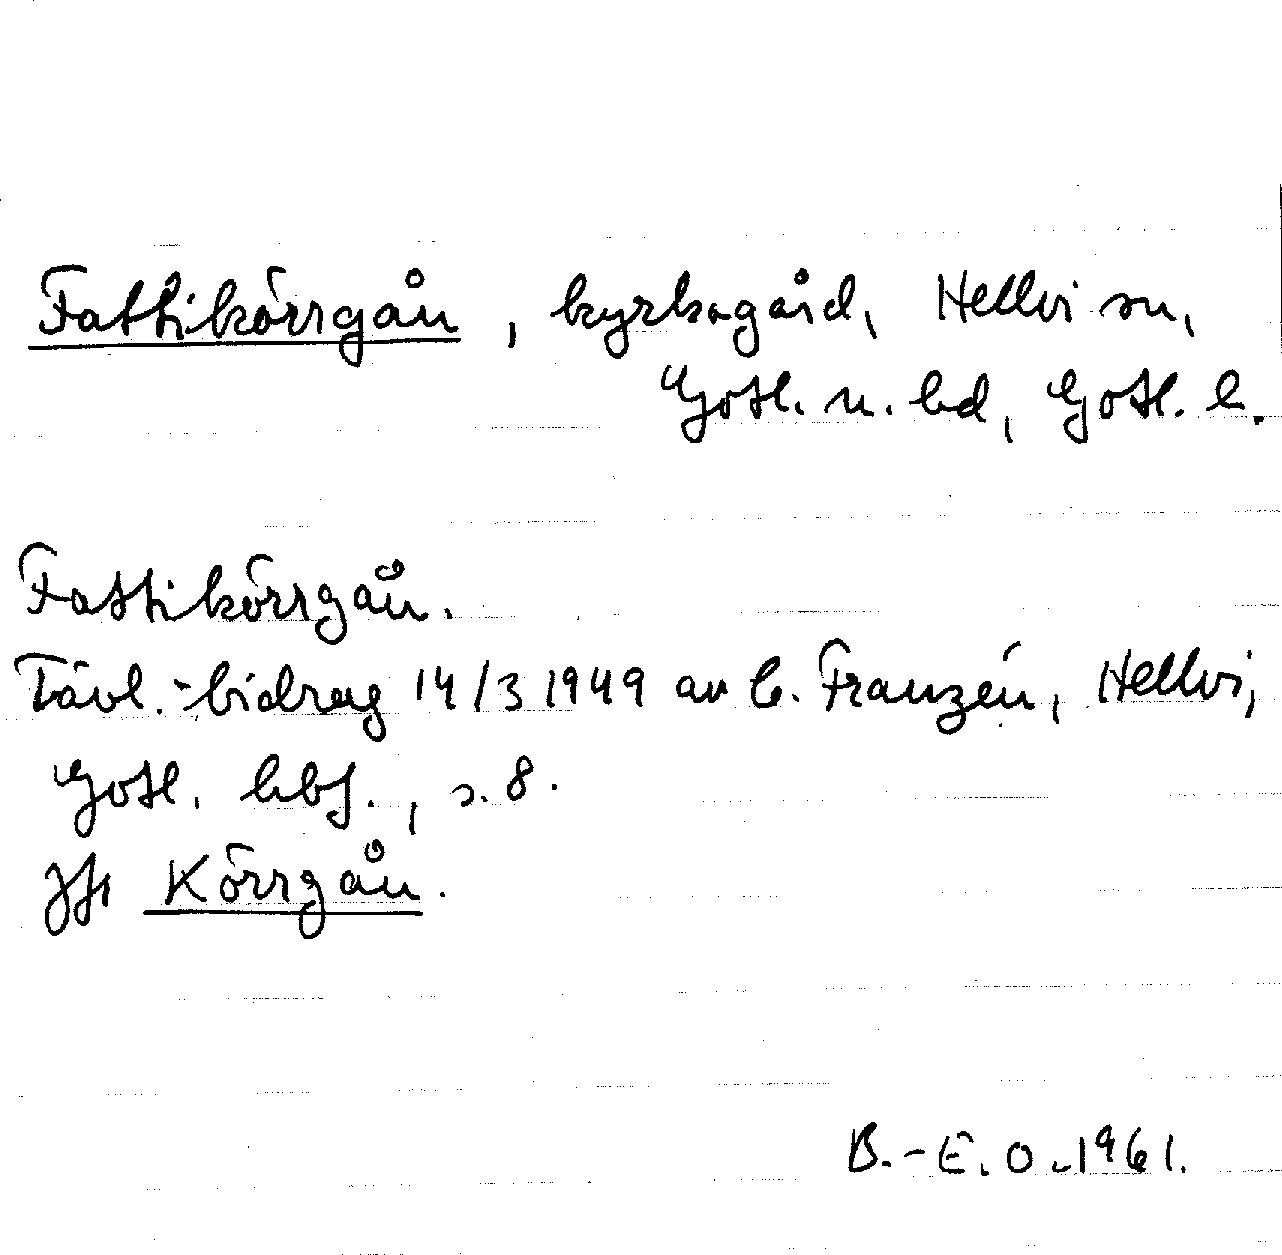 Fattikörrgån, kyrkogård, Hellvi sn,
Gotl. n. hd, Gotl. l.
Fattikörrgån.
Tävl.-bidrag 14/3 1949 av C. Franzén, Hellvi,
Gotl. hbf., s. 8.
Jfr Körrgån.
B.-E. O. 1961.